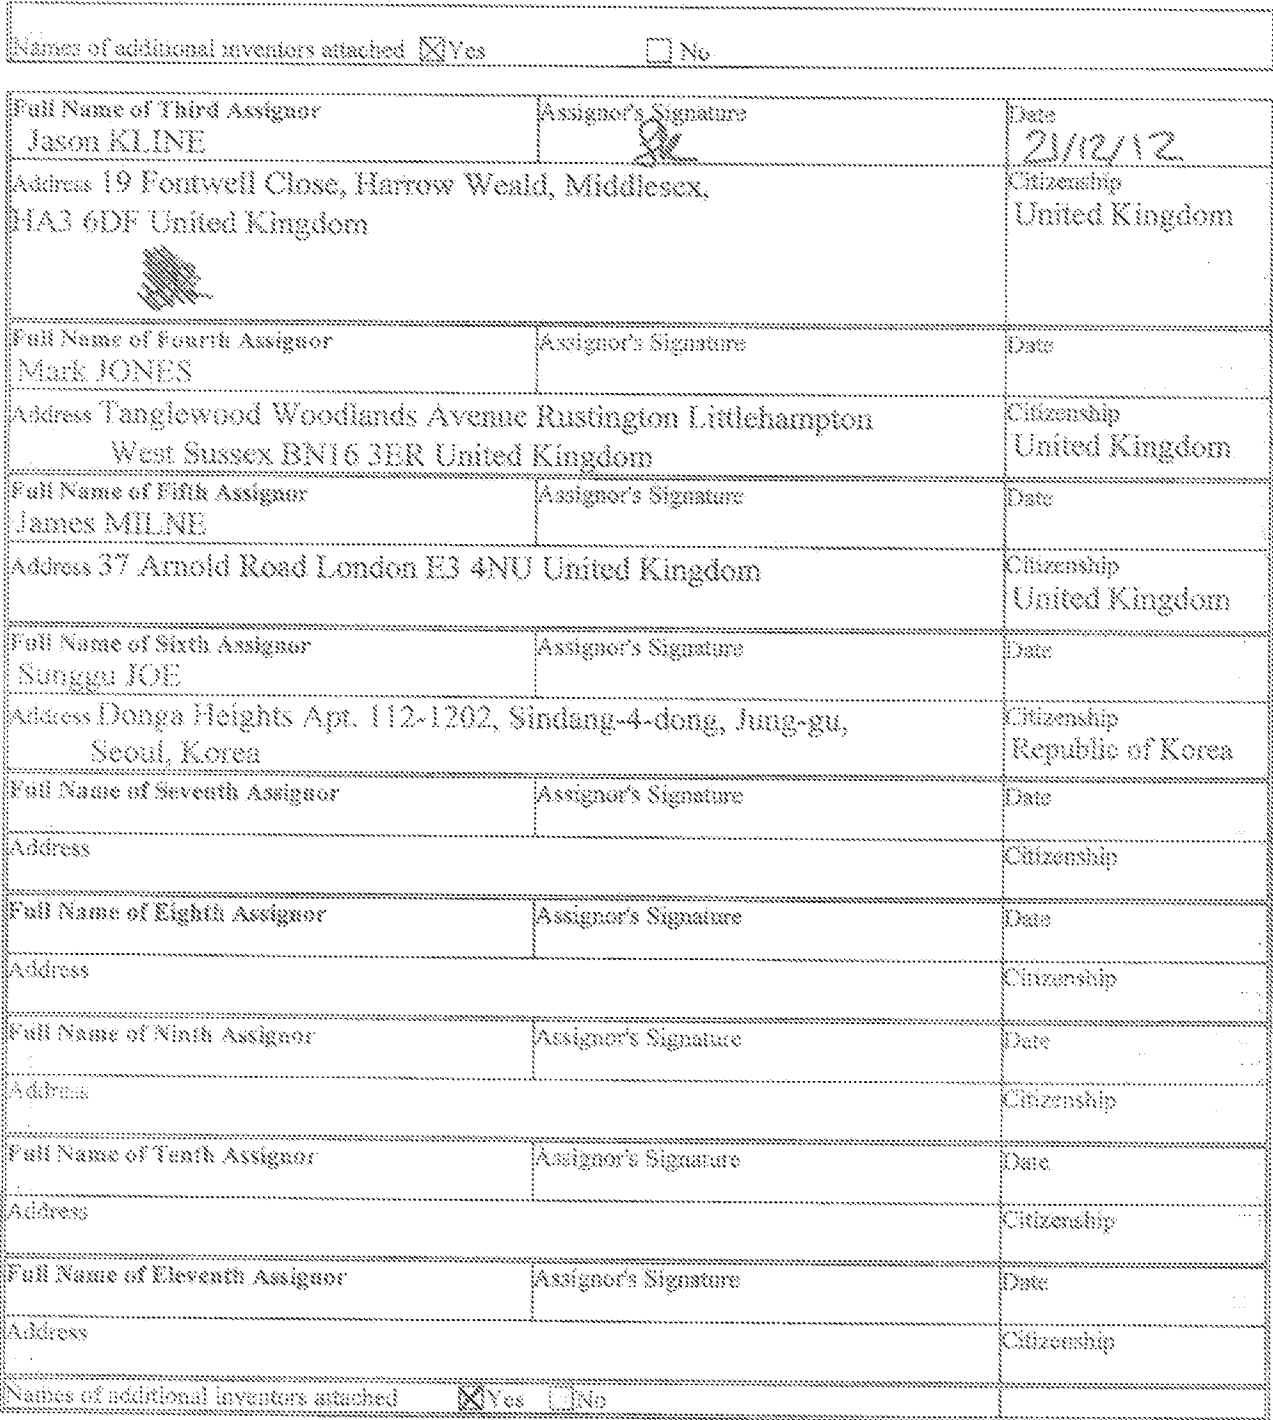 Names of additional inventors attached ☒ Yes ☐ No
Full Name of Third Assignor Assignor's Signature Date
Jason KLINE 21/12/12
Address 19 Fontwell Close, Harrow Weald, Middlesex, Citizenship
HA3 6DF United Kingdom United Kingdom
Full Name of Fourth Assignor Assignor's Signature Date
Mark JONES
Address Tanglewood Woodlands Avenue Rustington Littlehampton Citizenship
West Sussex BN16 3ER United Kingdom United Kingdom
Full Name of Fifth Assignor Assignor's Signature Date
James MILNE
Address 37 Arnold Road London E3 4NU United Kingdom Citizenship
United Kingdom
Full Name of Sixth Assignor Assignor's Signature Date
Sunggu JOE
Address Donga Heights Apt. 112-1202, Sindang-4-dong, Jung-gu, Citizenship
Seoul, Korea Republic of Korea
Full Name of Seventh Assignor Assignor's Signature Date
Address Citizenship
Full Name of Eighth Assignor Assignor's Signature Date
Address Citizenship
Full Name of Ninth Assignor Assignor's Signature Date
Address Citizenship
Full Name of Tenth Assignor Assignor's Signature Date
Address Citizenship
Full Name of Eleventh Assignor Assignor's Signature Date
Address Citizenship
Names of additional inventors attached ☒ Yes ☐ No